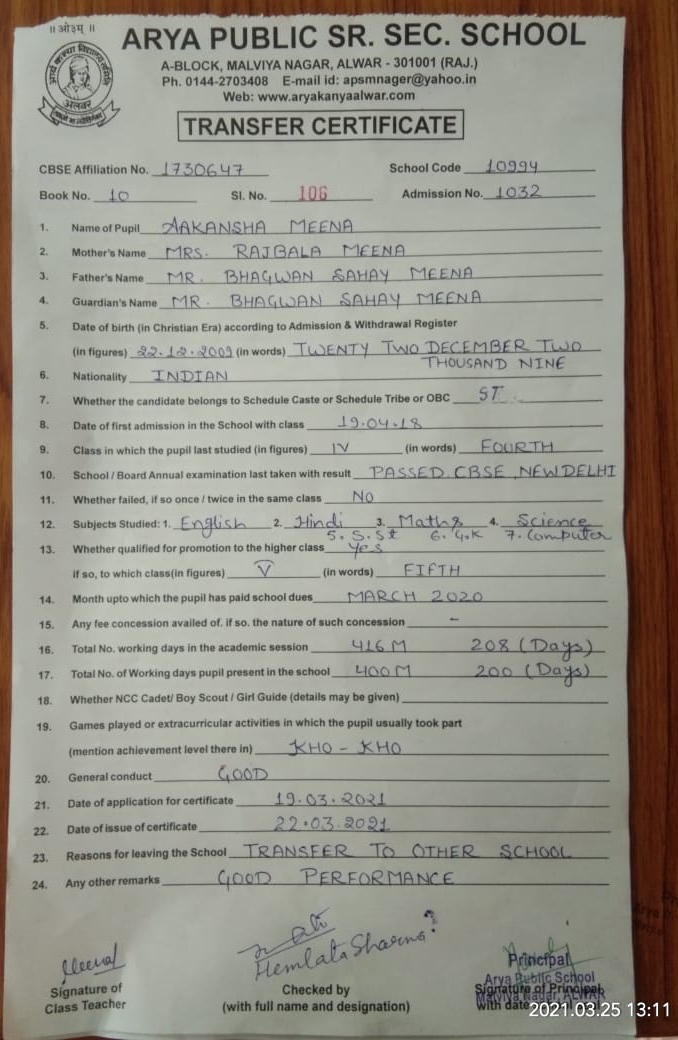 ॥ ओ३म् ॥
ARYA PUBLIC SR. SEC. SCHOOL
A-BLOCK, MALVIYA NAGAR, ALWAR - 301001 (RAJ.)
Ph. 0144-2703408 E-mail id: apsmnager@yahoo.in
Web: www.aryakanyaalwar.com
अलवर
TRANSFER CERTIFICATE
CBSE Affiliation No. 1730647 School Code 10994
Book No. 10 Sl. No. 106 Admission No. 1032
1. Name of Pupil AAKANSHA MEENA
2. Mother's Name MRS. RAJBALA MEENA
3. Father's Name MR. BHAGWAN SAHAY MEENA
4. Guardian's Name MR. BHAGWAN SAHAY MEENA
5. Date of birth (in Christian Era) according to Admission & Withdrawal Register
(in figures) 22.12.2009 (in words) TWENTY TWO DECEMBER TWO
THOUSAND NINE
6. Nationality INDIAN
7. Whether the candidate belongs to Schedule Caste or Schedule Tribe or OBC ST
8. Date of first admission in the School with class 19.04.18
9. Class in which the pupil last studied (in figures) IV (in words) FOURTH
10. School / Board Annual examination last taken with result PASSED CBSE, NEW DELHI
11. Whether failed, if so once / twice in the same class NO
12. Subjects Studied: 1. English 2. Hindi 3. Maths 4. Science
5. S.St 6. G.K 7. Computer
13. Whether qualified for promotion to the higher class Yes
if so, to which class(in figures) V (in words) FIFTH
14. Month upto which the pupil has paid school dues MARCH 2020
15. Any fee concession availed of. if so. the nature of such concession -
16. Total No. working days in the academic session 416 M 208 (Days)
17. Total No. of Working days pupil present in the school 400 M 200 (Days)
18. Whether NCC Cadet/ Boy Scout / Girl Guide (details may be given)
19. Games played or extracurricular activities in which the pupil usually took part
(mention achievement level there in) KHO - KHO
20. General conduct GOOD
21. Date of application for certificate 19.03.2021
22. Date of issue of certificate 22.03.2021
23. Reasons for leaving the School TRANSFER TO OTHER SCHOOL
24. Any other remarks GOOD PERFORMANCE
Hemlata Sharma
Principal
Arya Public School
Malviya Nagar, ALWAR
Signature of
Class Teacher
Checked by
(with full name and designation)
Signature of Principal
with date
2021.03.25 13:11